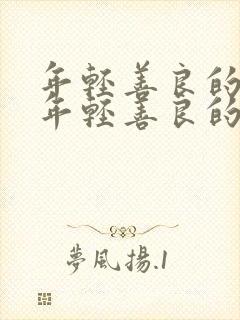 年輕善良的
年輕善良的
夢風揚.1